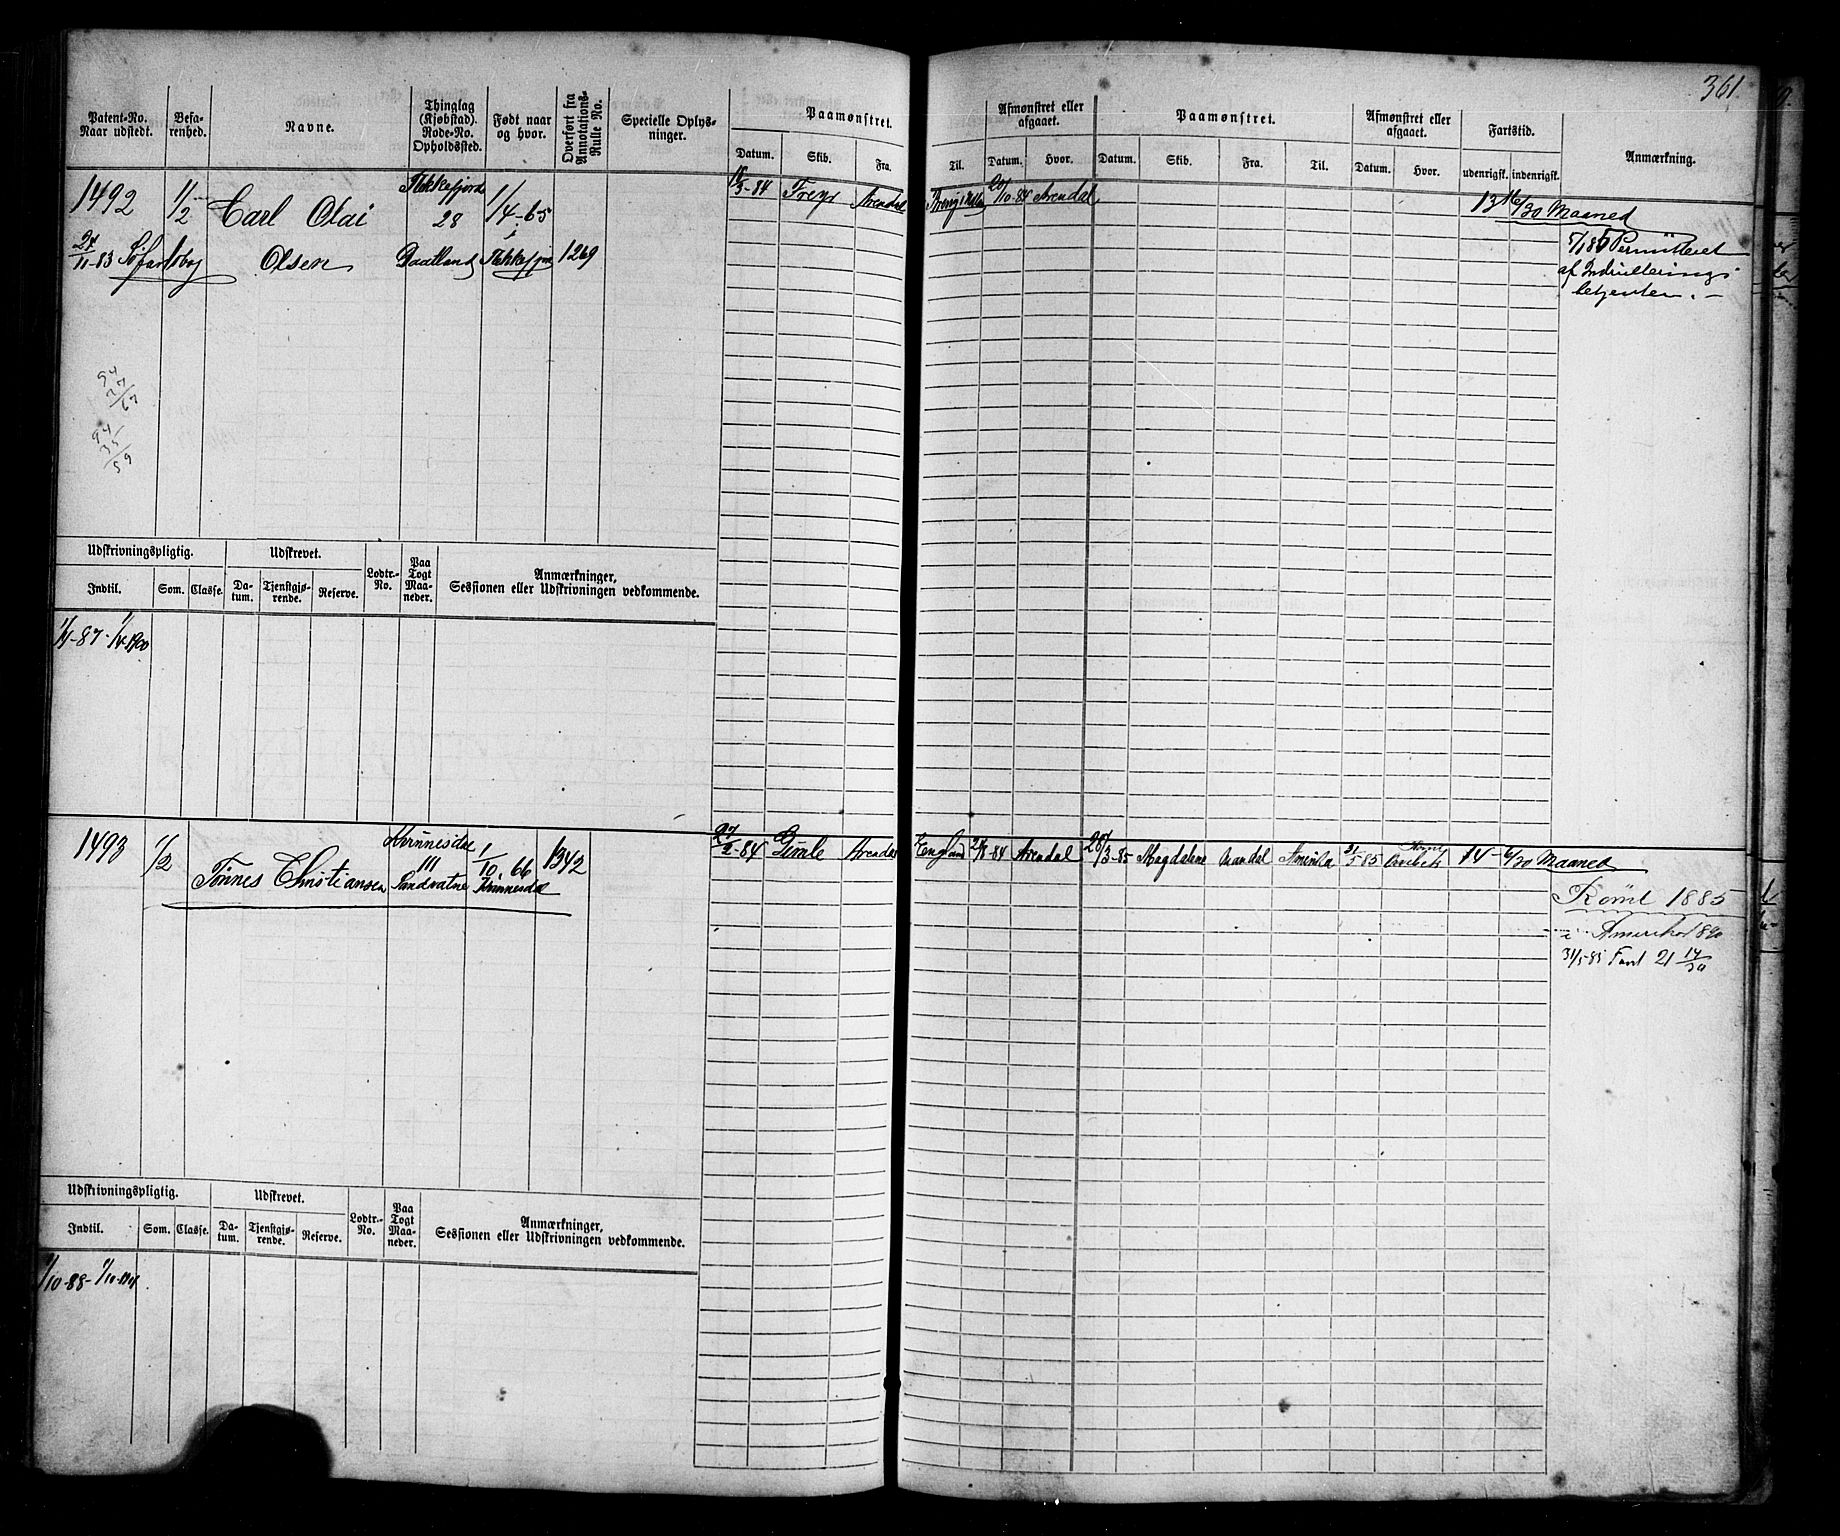 361.
Patent-No. Naar udstedt.
Befarenhed.
Navne.
Thinglag (Kjøbstad). Rode-No. Opholdssted.
Født naar og hvor.
Overført fra Annotations-Rulle No.
Specielle Oplysninger.
Paamønstret.
Datum.
Skib.
Fra.
Til.
Afmønstret eller afgaaet.
Datum.
Hvor.
Paamønstret.
Datum.
Skib.
Fra.
Til.
Afmønstret eller afgaaet.
Datum.
Hvor.
Fartstid.
udenrigsk.
indenrigsk.
Anmærkning.
1492 1/2 Carl Olai Flekkefjord 28 1/4-65 3-84 Freyr Arendal 20/10-84 Arendal 13 16/30 Maaned
24/11-83 Olsen Flekkefjord 1269
Permitteret
af Indrulleringsbetjenten.
94
27/67
94
35/59
Udskrivningspligtig.
Udskrevet.
Lodtr.-No.
Paa Togt Maaneder.
Anmærkninger, Sessionen eller Udskrivningen vedkommende.
Indtil.
Som.
Classe.
Datum.
Tjenstgjørende.
Reserve.
1/1-87-1/1-1900
1493 1/2 Tønnes Christiansen 111 Sandvatne 1/10.66 1342 27/2-84 Gimle Arendal England 84 Arendal 3-85 Magdalene Mandal Amerika 5-85 14 6/30 Maaned
Rømt 1885
i Amerika 1890
31/5-85 Fart 21 14/30
Udskrivningspligtig.
Udskrevet.
Lodtr.-No.
Paa Togt Maaneder.
Anmærkninger, Sessionen eller Udskrivningen vedkommende.
Indtil.
Som.
Classe.
Datum.
Tjenstgjørende.
Reserve.
1/10-88-